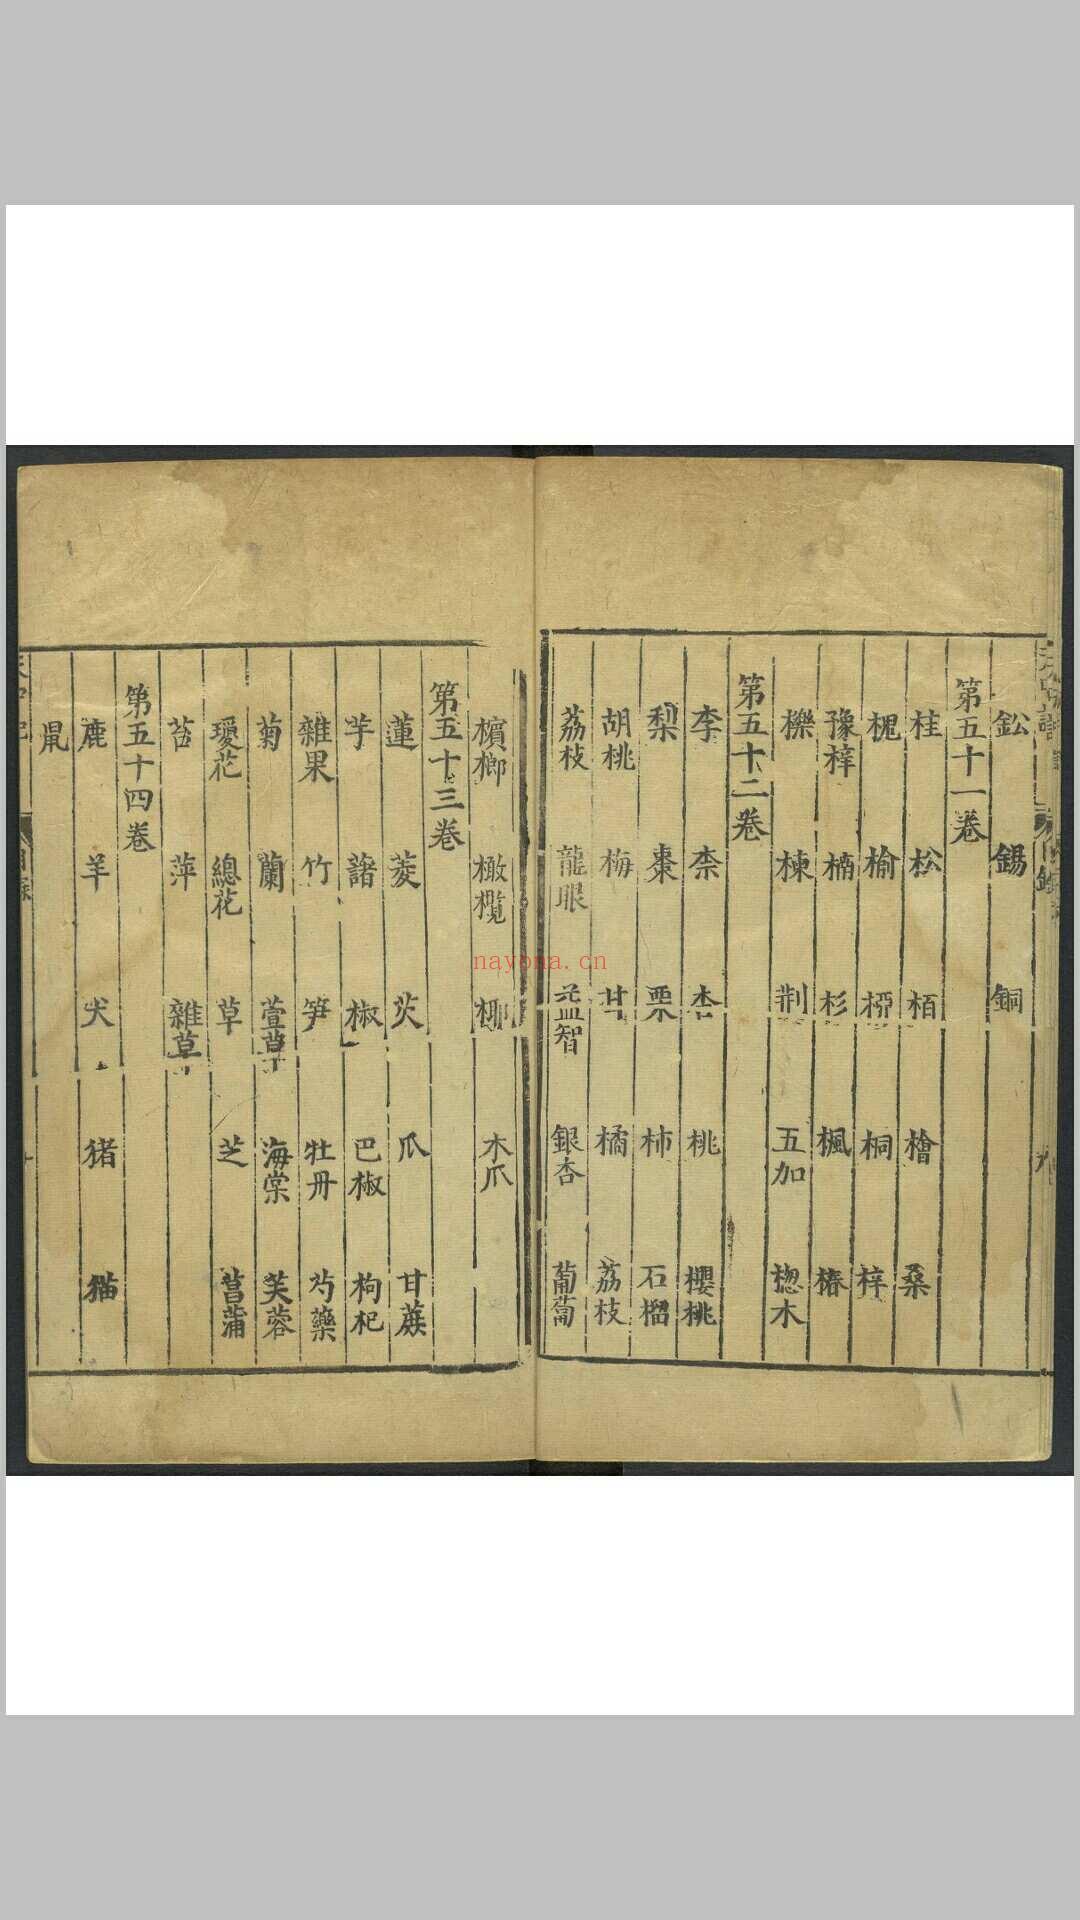 鈆 錫 銅
第五十一卷
桂 松 栢 檜 桑
槐 榆 椏 桐 梓
豫梓 楠 杉 楓 椿
櫟 楝 荆 五加 楤木
第五十二卷
李 柰 杏 桃 櫻桃
梨 棗 栗 柿 石榴
胡桃 梅 甘 橘 荔枝
荔枝 龍眼 益智 銀杏 葡萄
檳榔 橄欖 椰 木瓜
第五十三卷
蓮 菱 芡 瓜 甘蔗
芋 藷 椒 巴椒 枸杞
雜果 竹 笋 牡丹 芍藥
菊 蘭 萱草 海棠 芙蓉
瓊花 總花 草 芝 菖蒲
苔 萍 雜草
第五十四卷
鹿 羊 犬 猪 猫
鼠
nayona.cn